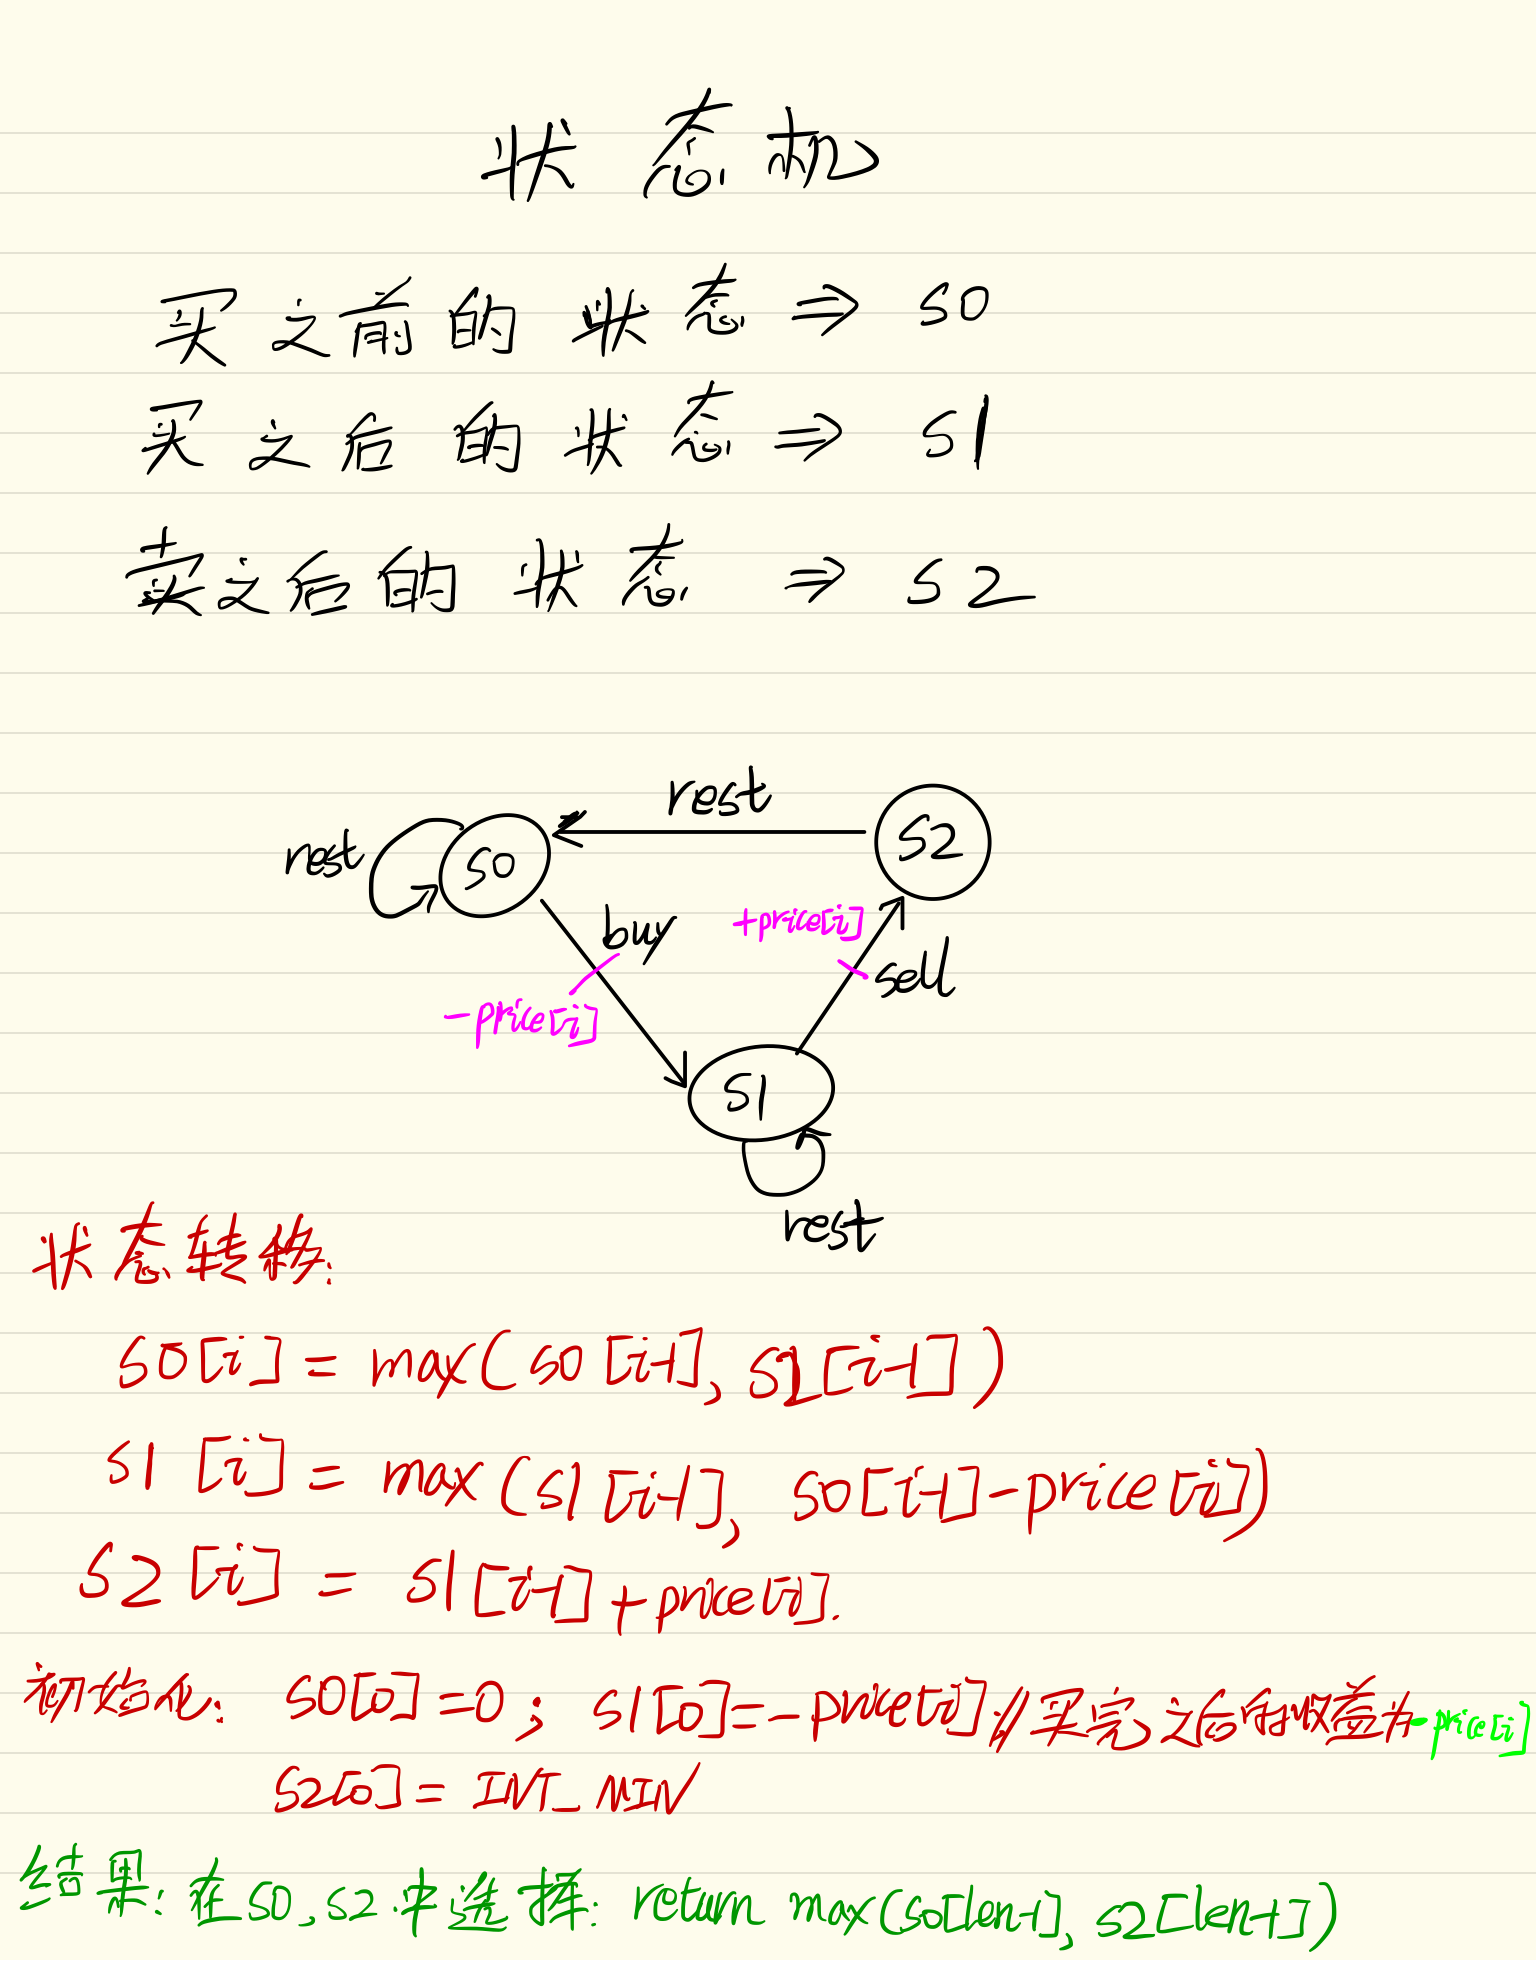 状态机
买之前的状态 ⇒ S0
买之后的状态 ⇒ S1
卖之后的状态 ⇒ S2
rest
S2
rest
S0
buy
+price[i]
sell
-price[i]
S1
rest
状态转移:
S0[i] = max(S0[i-1], S2[i-1])
S1[i] = max(S1[i-1], S0[i-1]-price[i])
S2[i] = S1[i-1]+price[i].
初始化: S0[0]=0; S1[0]=-price[i]; //买完之后的收益为-price[i]
S2[0] = INT_MIN
结果: 在S0,S2中选择: return max(S0[len-1], S2[len-1])